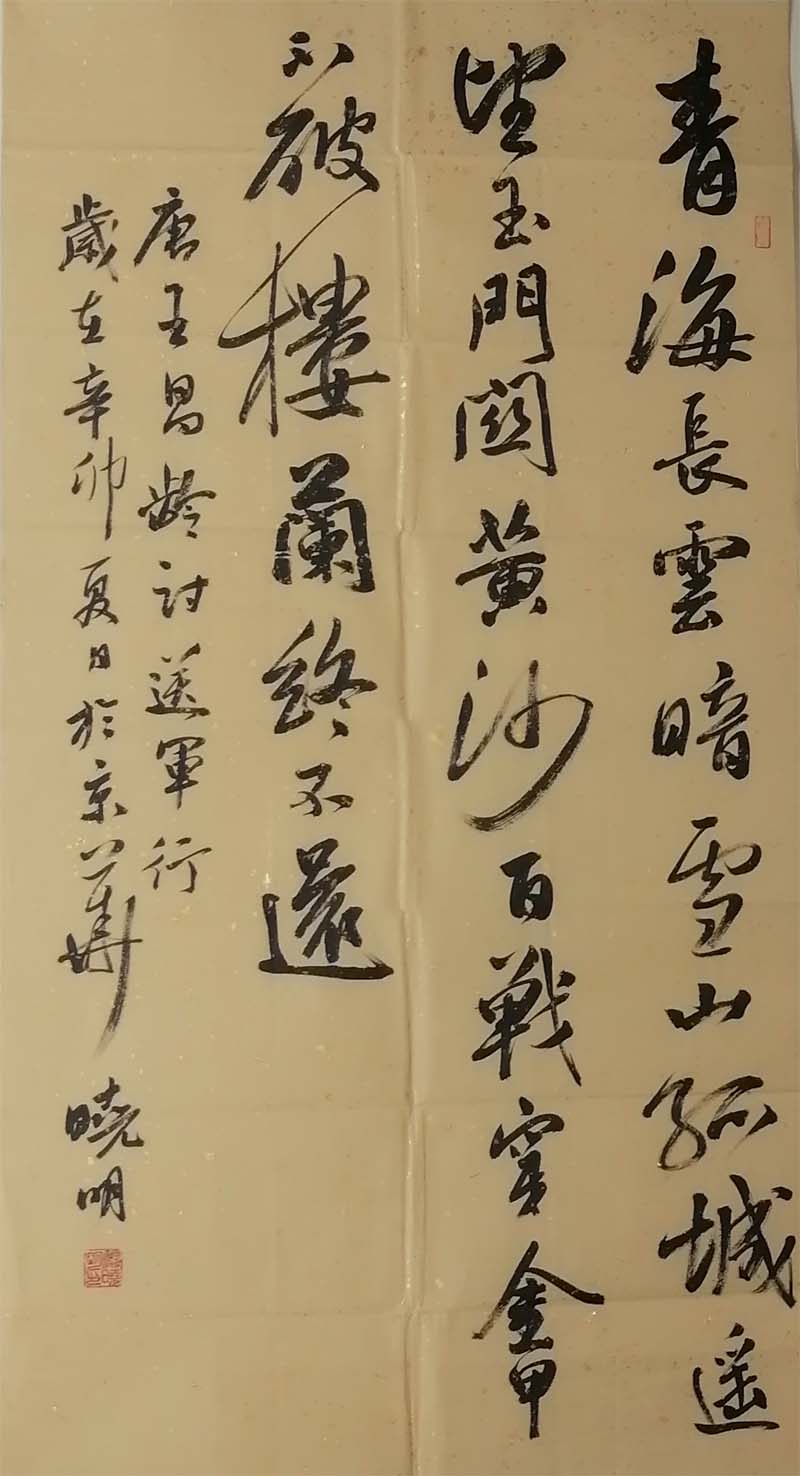 青海長雲暗雪山孤城遥
望玉門關黄沙百戰穿金甲
不破樓蘭終不還
唐王昌齡詩送軍行
歲在辛卯夏日於京華 曉明